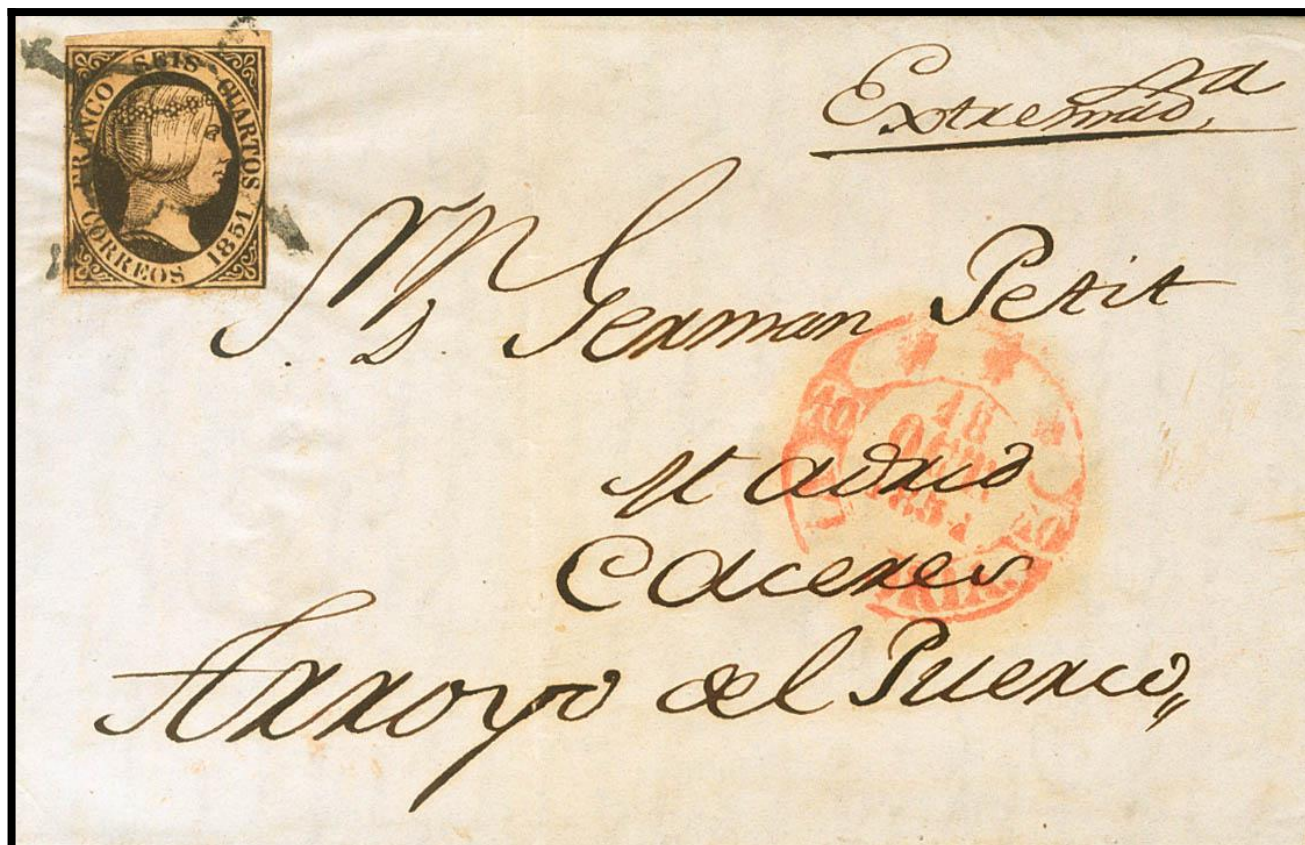 FRANCO SEIS CUARTOS
CORREOS 1851
Extremad.ª
S.r D. German Petit
Madrid
Caceres
Arroyo del Puerco
18
185